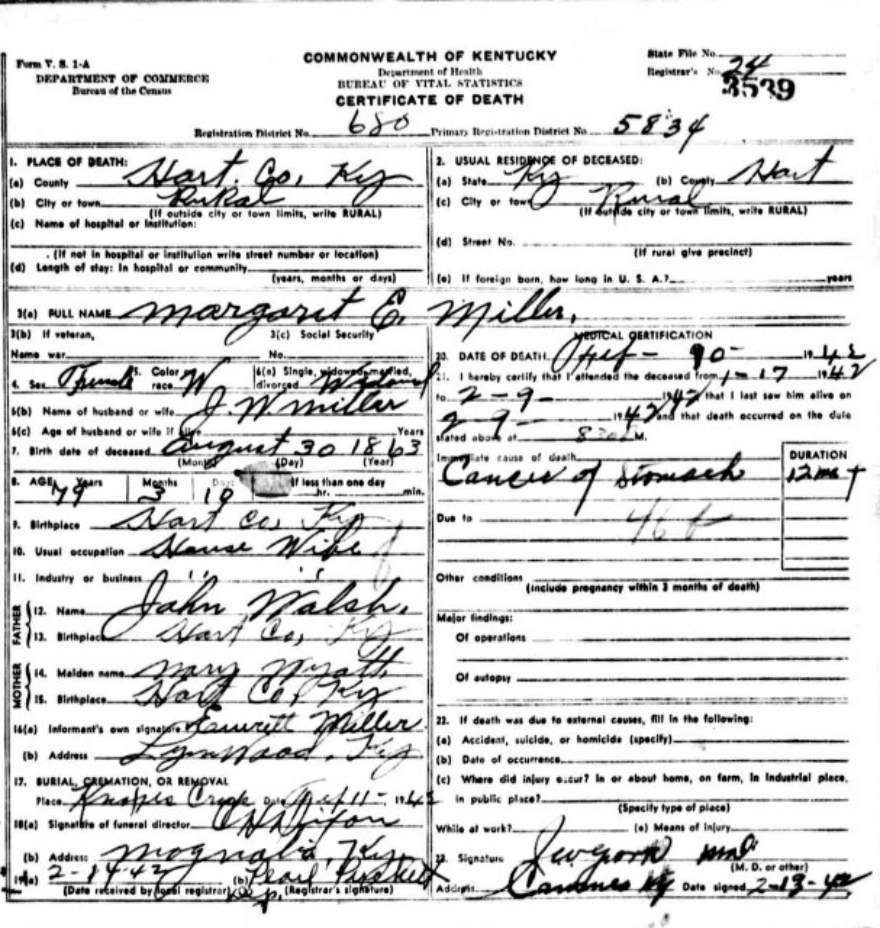 Form V. S. 1-A
DEPARTMENT OF COMMERCE
Bureau of the Census
COMMONWEALTH OF KENTUCKY
Department of Health
BUREAU OF VITAL STATISTICS
CERTIFICATE OF DEATH
State File No.
Registrar's No. 24
3539
Registration District No. 680 Primary Registration District No. 5834
1. PLACE OF DEATH:
(a) County Hart. Co, Ky
(b) City or town Rural
(If outside city or town limits, write RURAL)
(c) Name of hospital or institution:
(If not in hospital or institution write street number or location)
(d) Length of stay: In hospital or community
(years, months or days)
2. USUAL RESIDENCE OF DECEASED:
(a) State Ky (b) County Hart
(c) City or town Rural
(If outside city or town limits, write RURAL)
(d) Street No.
(If rural give precinct)
(e) If foreign born, how long in U. S. A.? years
3(a) FULL NAME Margaret E. Miller.
3(b) If veteran, 3(c) Social Security
Name war No.
4. Sex 5. Color race W 6(a) Single, widowed, married, divorced Widowed
6(b) Name of husband or wife J. W. Miller
6(c) Age of husband or wife if alive Years
7. Birth date of deceased August 30 1863
(Month) (Day) (Year)
8. AGE Years Months Days If less than one day
79 3 10 hr. min.
9. Birthplace Hart Co, Ky
10. Usual occupation House Wife
11. Industry or business
FATHER
12. Name John Walsh.
13. Birthplace Hart Co, Ky
MOTHER
14. Maiden name Mary Wyatt
15. Birthplace Hart Co, Ky
16(a) Informant's own signature Everett Miller
(b) Address Lynwood, Ky
17. BURIAL, CREMATION, OR REMOVAL
Place Creek Date 11- 1942
18(a) Signature of funeral director Dixon
(b) Address Magnolia, Ky
19(a) 2-14-42 (b) Pearl
(Date received by local registrar) Dep. (Registrar's signature)
MEDICAL CERTIFICATION
20. DATE OF DEATH 1942
21. I hereby certify that I attended the deceased from 1-17 1942
to 2-9- 1942 that I last saw him alive on
2-9- 1942 and that death occurred on the date
stated above at M.
Immediate cause of death
Cancer of Stomach
DURATION
12 mo +
Due to 46 b
Other conditions
(Include pregnancy within 3 months of death)
Major findings:
Of operations
Of autopsy
22. If death was due to external causes, fill in the following:
(a) Accident, suicide, or homicide (specify)
(b) Date of occurrence
(c) Where did injury occur? In or about home, on farm, in industrial place,
in public place?
(Specify type of place)
While at work? (e) Means of injury
23. Signature
(M. D. or other)
Address Canmer Ky Date signed 2-13-42